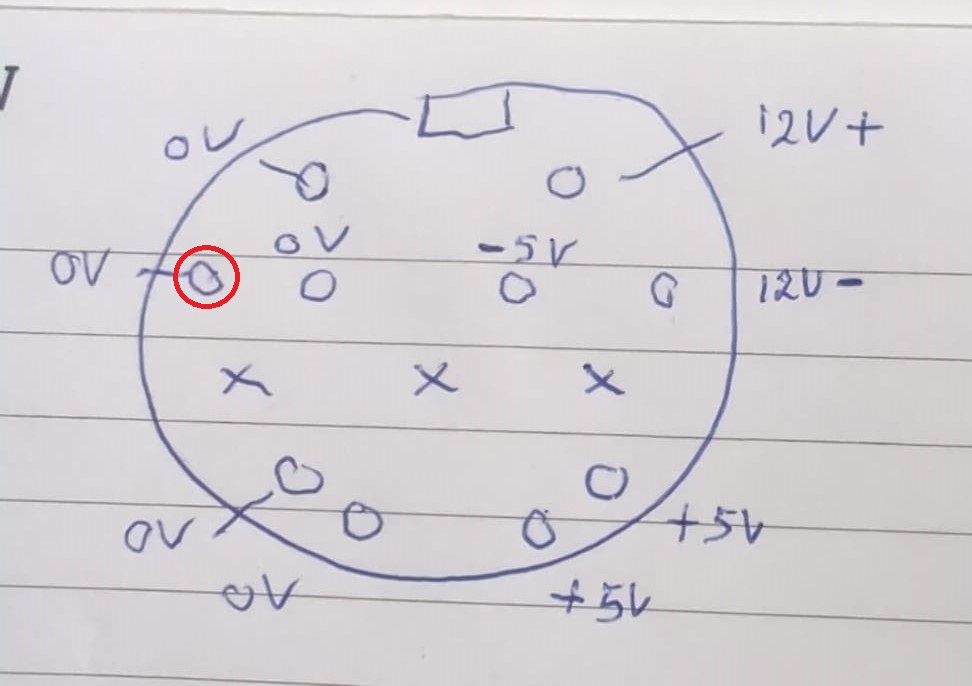 0V
12V+
0V
-5V
0V
12V-
x x x
0V
+5V
0V
+5V